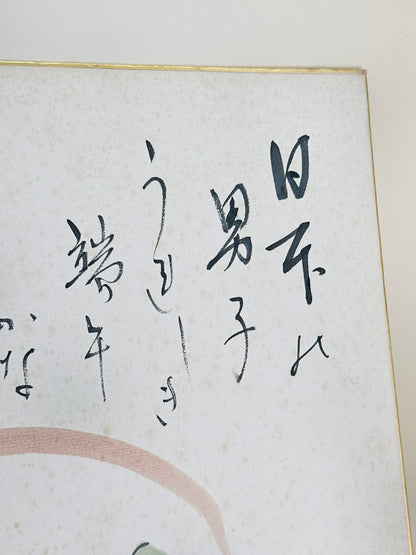 日本の
男子
うれしき
端午
かな